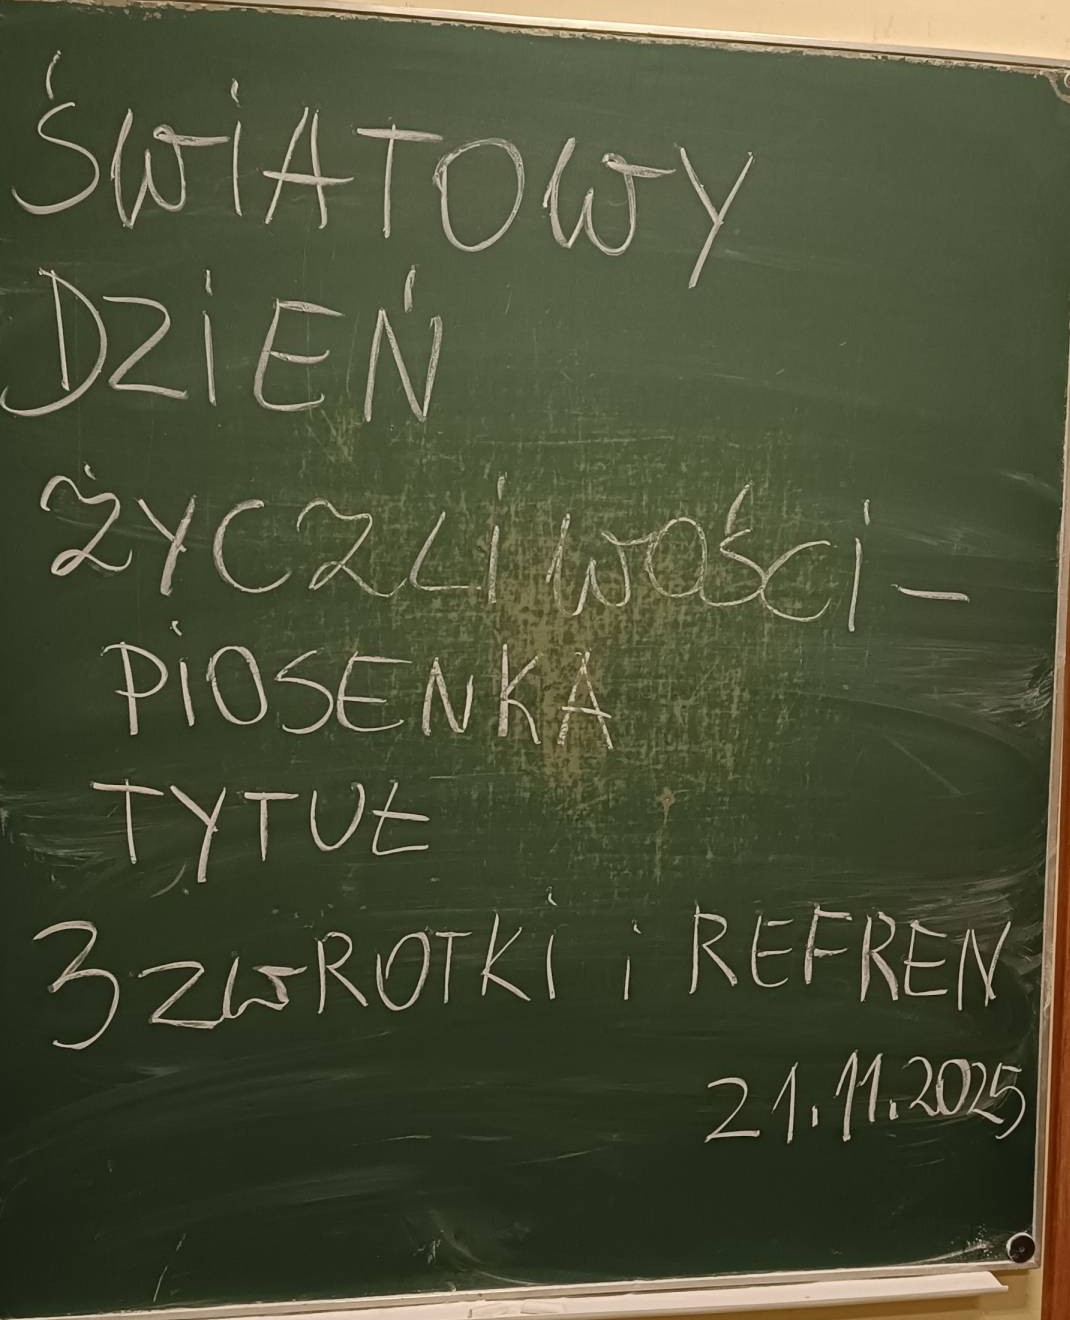 ŚWIATOWY
DZIEŃ
ŻYCZLIWOŚCI -
PIOSENKA
TYTUŁ
3 ZWROTKI i REFREN
21.11.2025